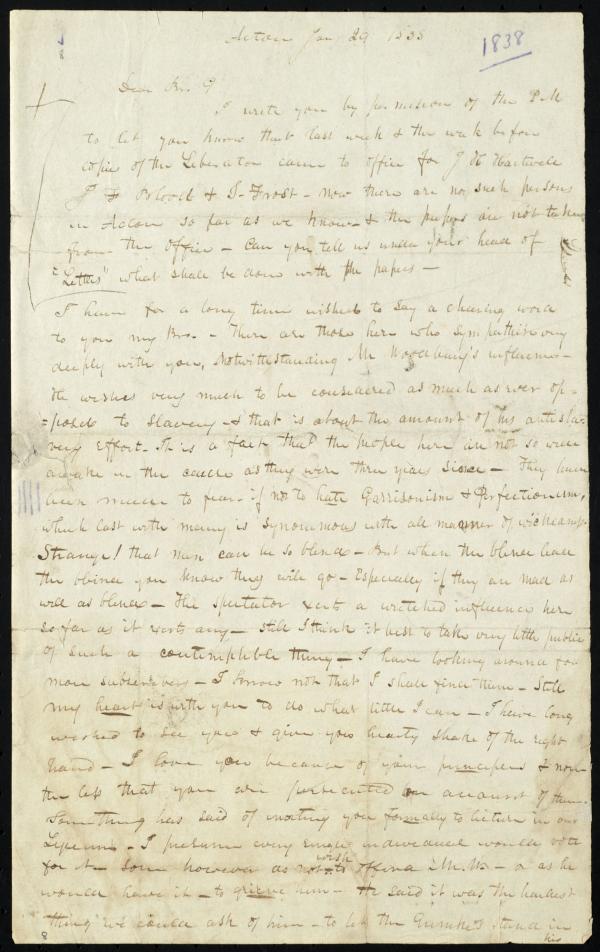 Acton Jan 29 1838
1838
Dear Br. G
I write you by permission of the P.M
to let you know that last week & the week before
copies of the Liberator came to office for J H Hartwell
J & I. Frost - now there are no such persons
in Acton so far as we know - & the papers are not taken
from the office - Can you tell us under your head of
"Letters" what shall be done with the papers -
I have for a long time wished to say a cheering word
to you my Bro. - There are those here who sympathise very
deeply with you, Notwithstanding Mr Woodbury's influence -
He wishes very much to be considered as much as ever op-
=posed to slavery - & that is about the amount of his antisla-
very effort - It is a fact that the people here are not so well
awake in the cause as they were three years since - They have
been made to fear if not to hate Garrisonism & Perfectionism,
which last with many is synonimous with all manner of wickedness.
Strange! that men can be so blind - But when the blind lead
the blind you know they will go - Especially if they are mad as
well as blind - The Spectator exerts a wretched influence here
so far as it exerts any - still I think it best to take very little public
of such a contemptible thing - I have looking around for
more subscribers - I know not that I shall find them - Still
my heart is with you to do what little I can - I have long
wished to see you & give you hearty shake of the right
hand - I love you because of your principles & none
the less that you are persecuted on account of them -
Something has said of inviting you formally to lecture in our
Lyceum - I presume every single individual would vote
for it - some however as not wish to offend Mr. W. - or as he
would have it - to grieve him - He said it was the hardest
thing we could ask of him - to let the Grimkes stand in
his
8